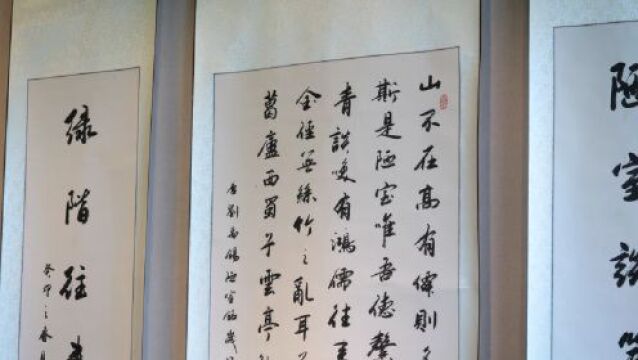 陋室談笑
山不在高有僊則
斯是陋室唯吾德馨
青談笑有鴻儒往來
金徑無絲竹之亂耳
葛廬西蜀子雲亭
唐劉禹錫陋室銘
緑階往
癸卯之春月